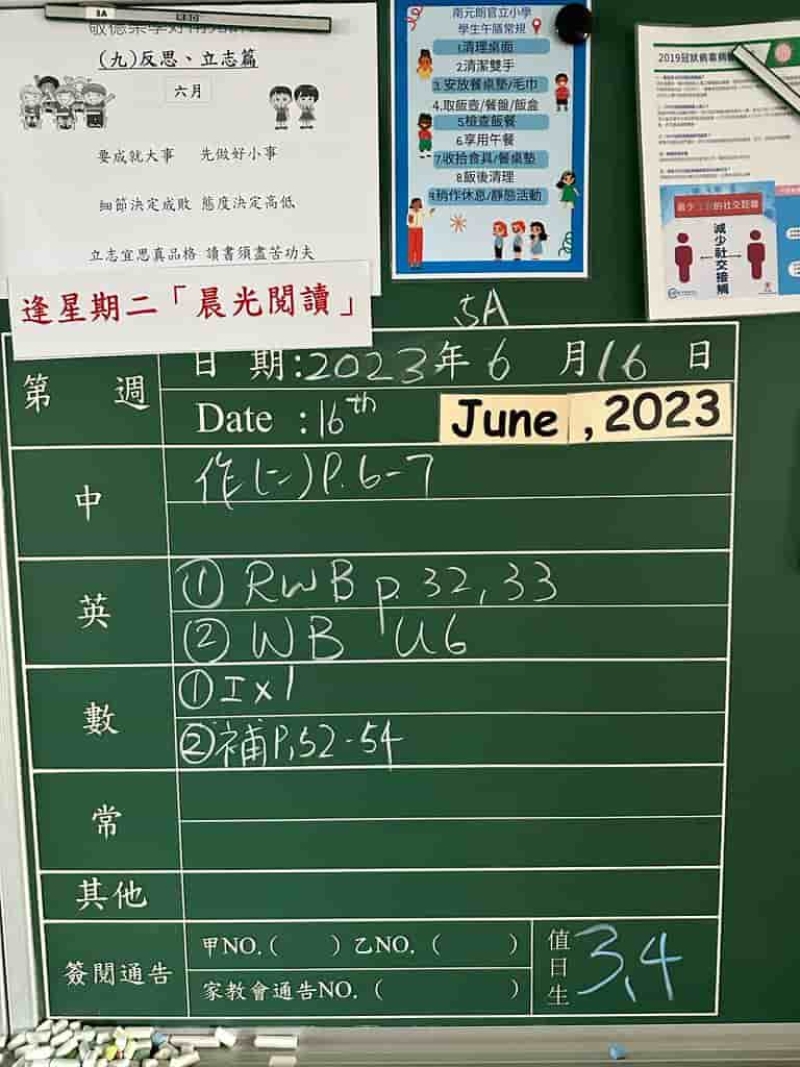 (九)反思、立志篇
六月
要成就大事　先做好小事
細節決定成敗 態度決定高低
立志宜思真品格 讀書須盡苦功夫
逢星期二「晨光閱讀」
南元朗官立小學
學生午膳常規
1.清理桌面
2.清潔雙手
3.安放餐桌墊/毛巾
4.取飯壺/餐盤/飯盒
5檢查飯餐
6.享用午餐
7.收拾食具/餐桌墊
8.飯後清理
9.稍作休息/靜態活動
減少社交接觸
5A
第　週
日 期:2023年6月16日
Date :16th June ,2023
中
作(二)P.6-7
英
①RWB p.32,33
②WB U6
數
①工x1
②補P.52-54
常
其他
簽閱通告
甲NO.(　　)乙NO.(　　)
家教會通告NO.(　　)
值日生
3,4